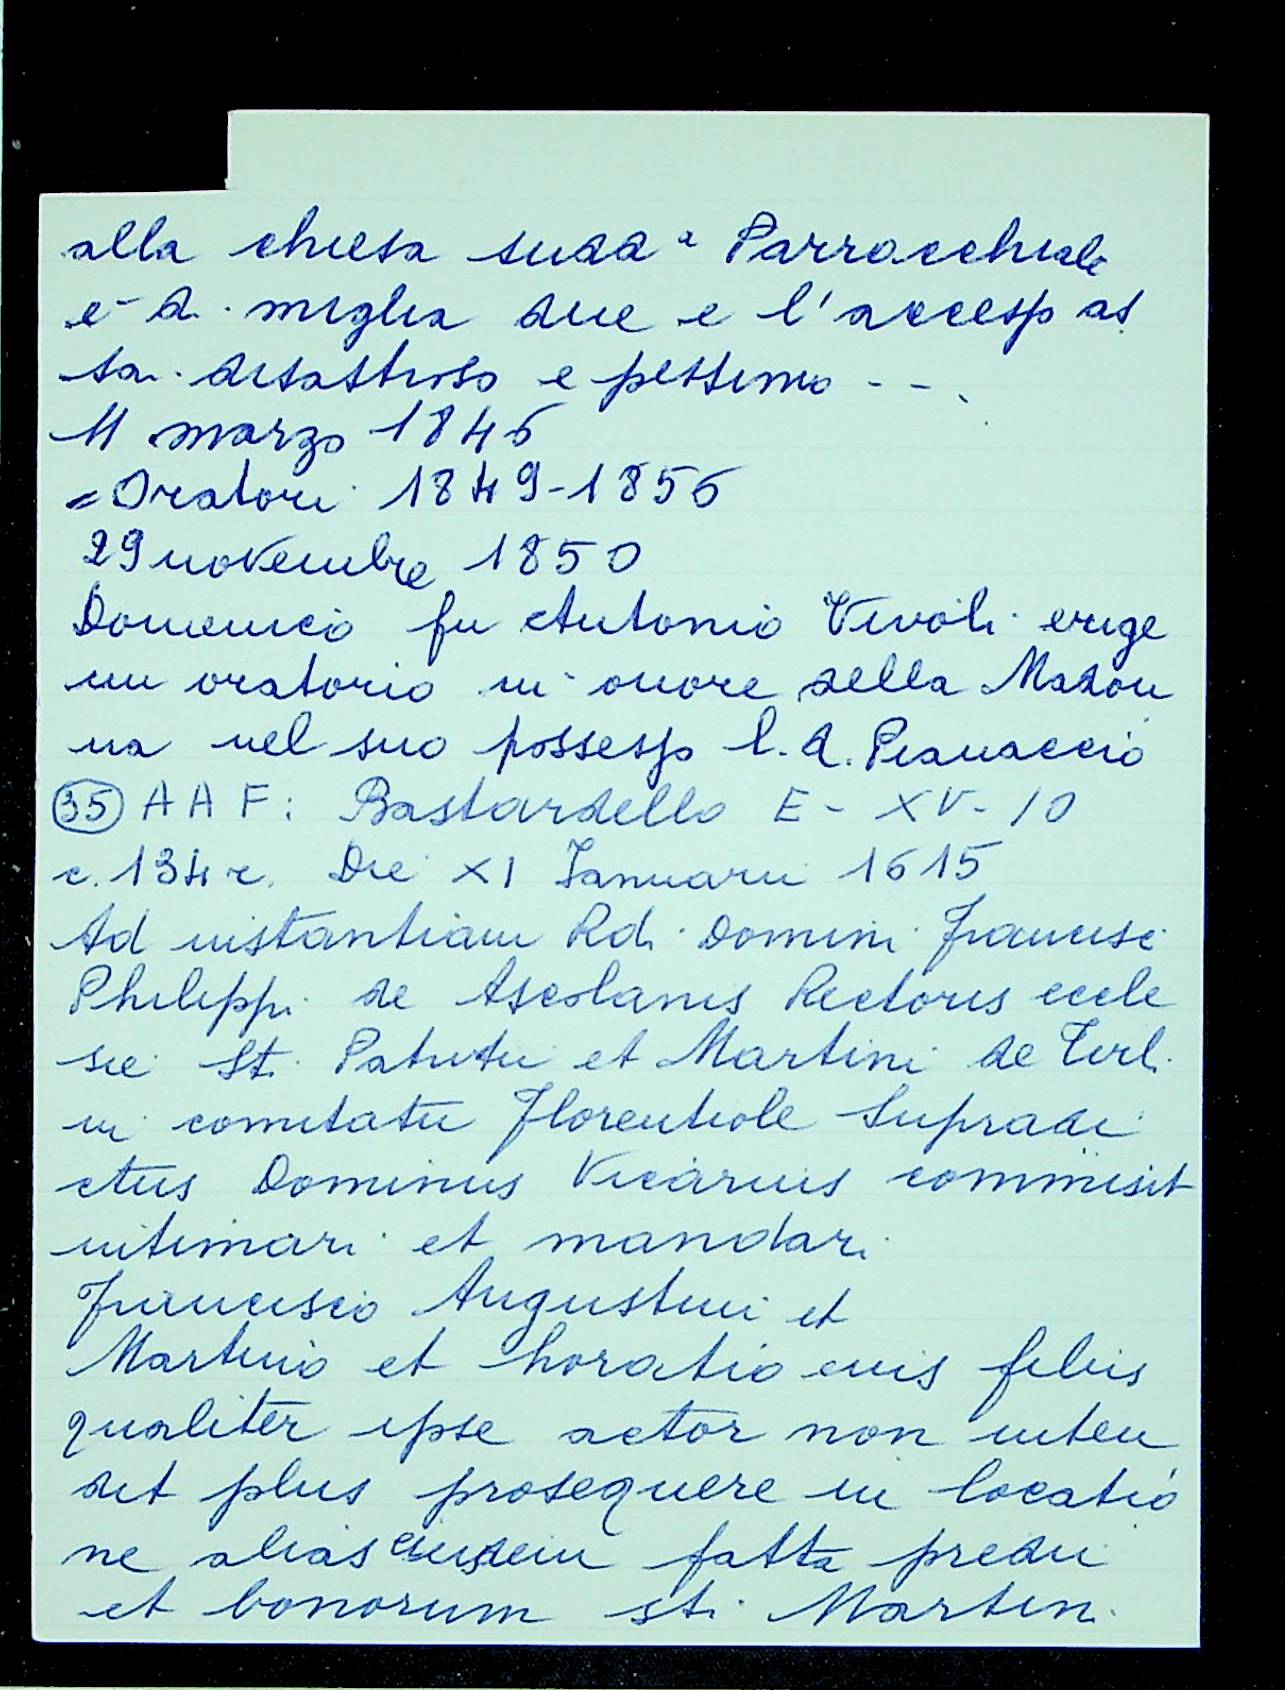 alla chiesa sudda Parrocchiale
è di miglia due e l'accesso as
sai disastroso e pessimo - - .
11 marzo 1846
= Oratori 1849-1856
29 novembre 1850
Domenico fu Antonio Vivoli erige
un oratorio in onore della Madon
na nel suo possesso l. d. Pianaccio
(35) A A F: Bastardello E - XV - 10
c. 134 r. Die XI Januarii 1615
Ad instantiam Rdi Domini Francisci
Philippi de Ascolanis Rectoris eccle
sie Sti Patritii et Martini de Tirli
in comitatu Florentiole Supradi
ctus Dominus Vicarius commisit
intimari et mandari
Francisco Augustini et
Martino et horatio eius filiis
qualiter ipse actor non inten
dit plus prosequere in locatio
ne alias eiusdem fatta predii
et bonorum sti Martini